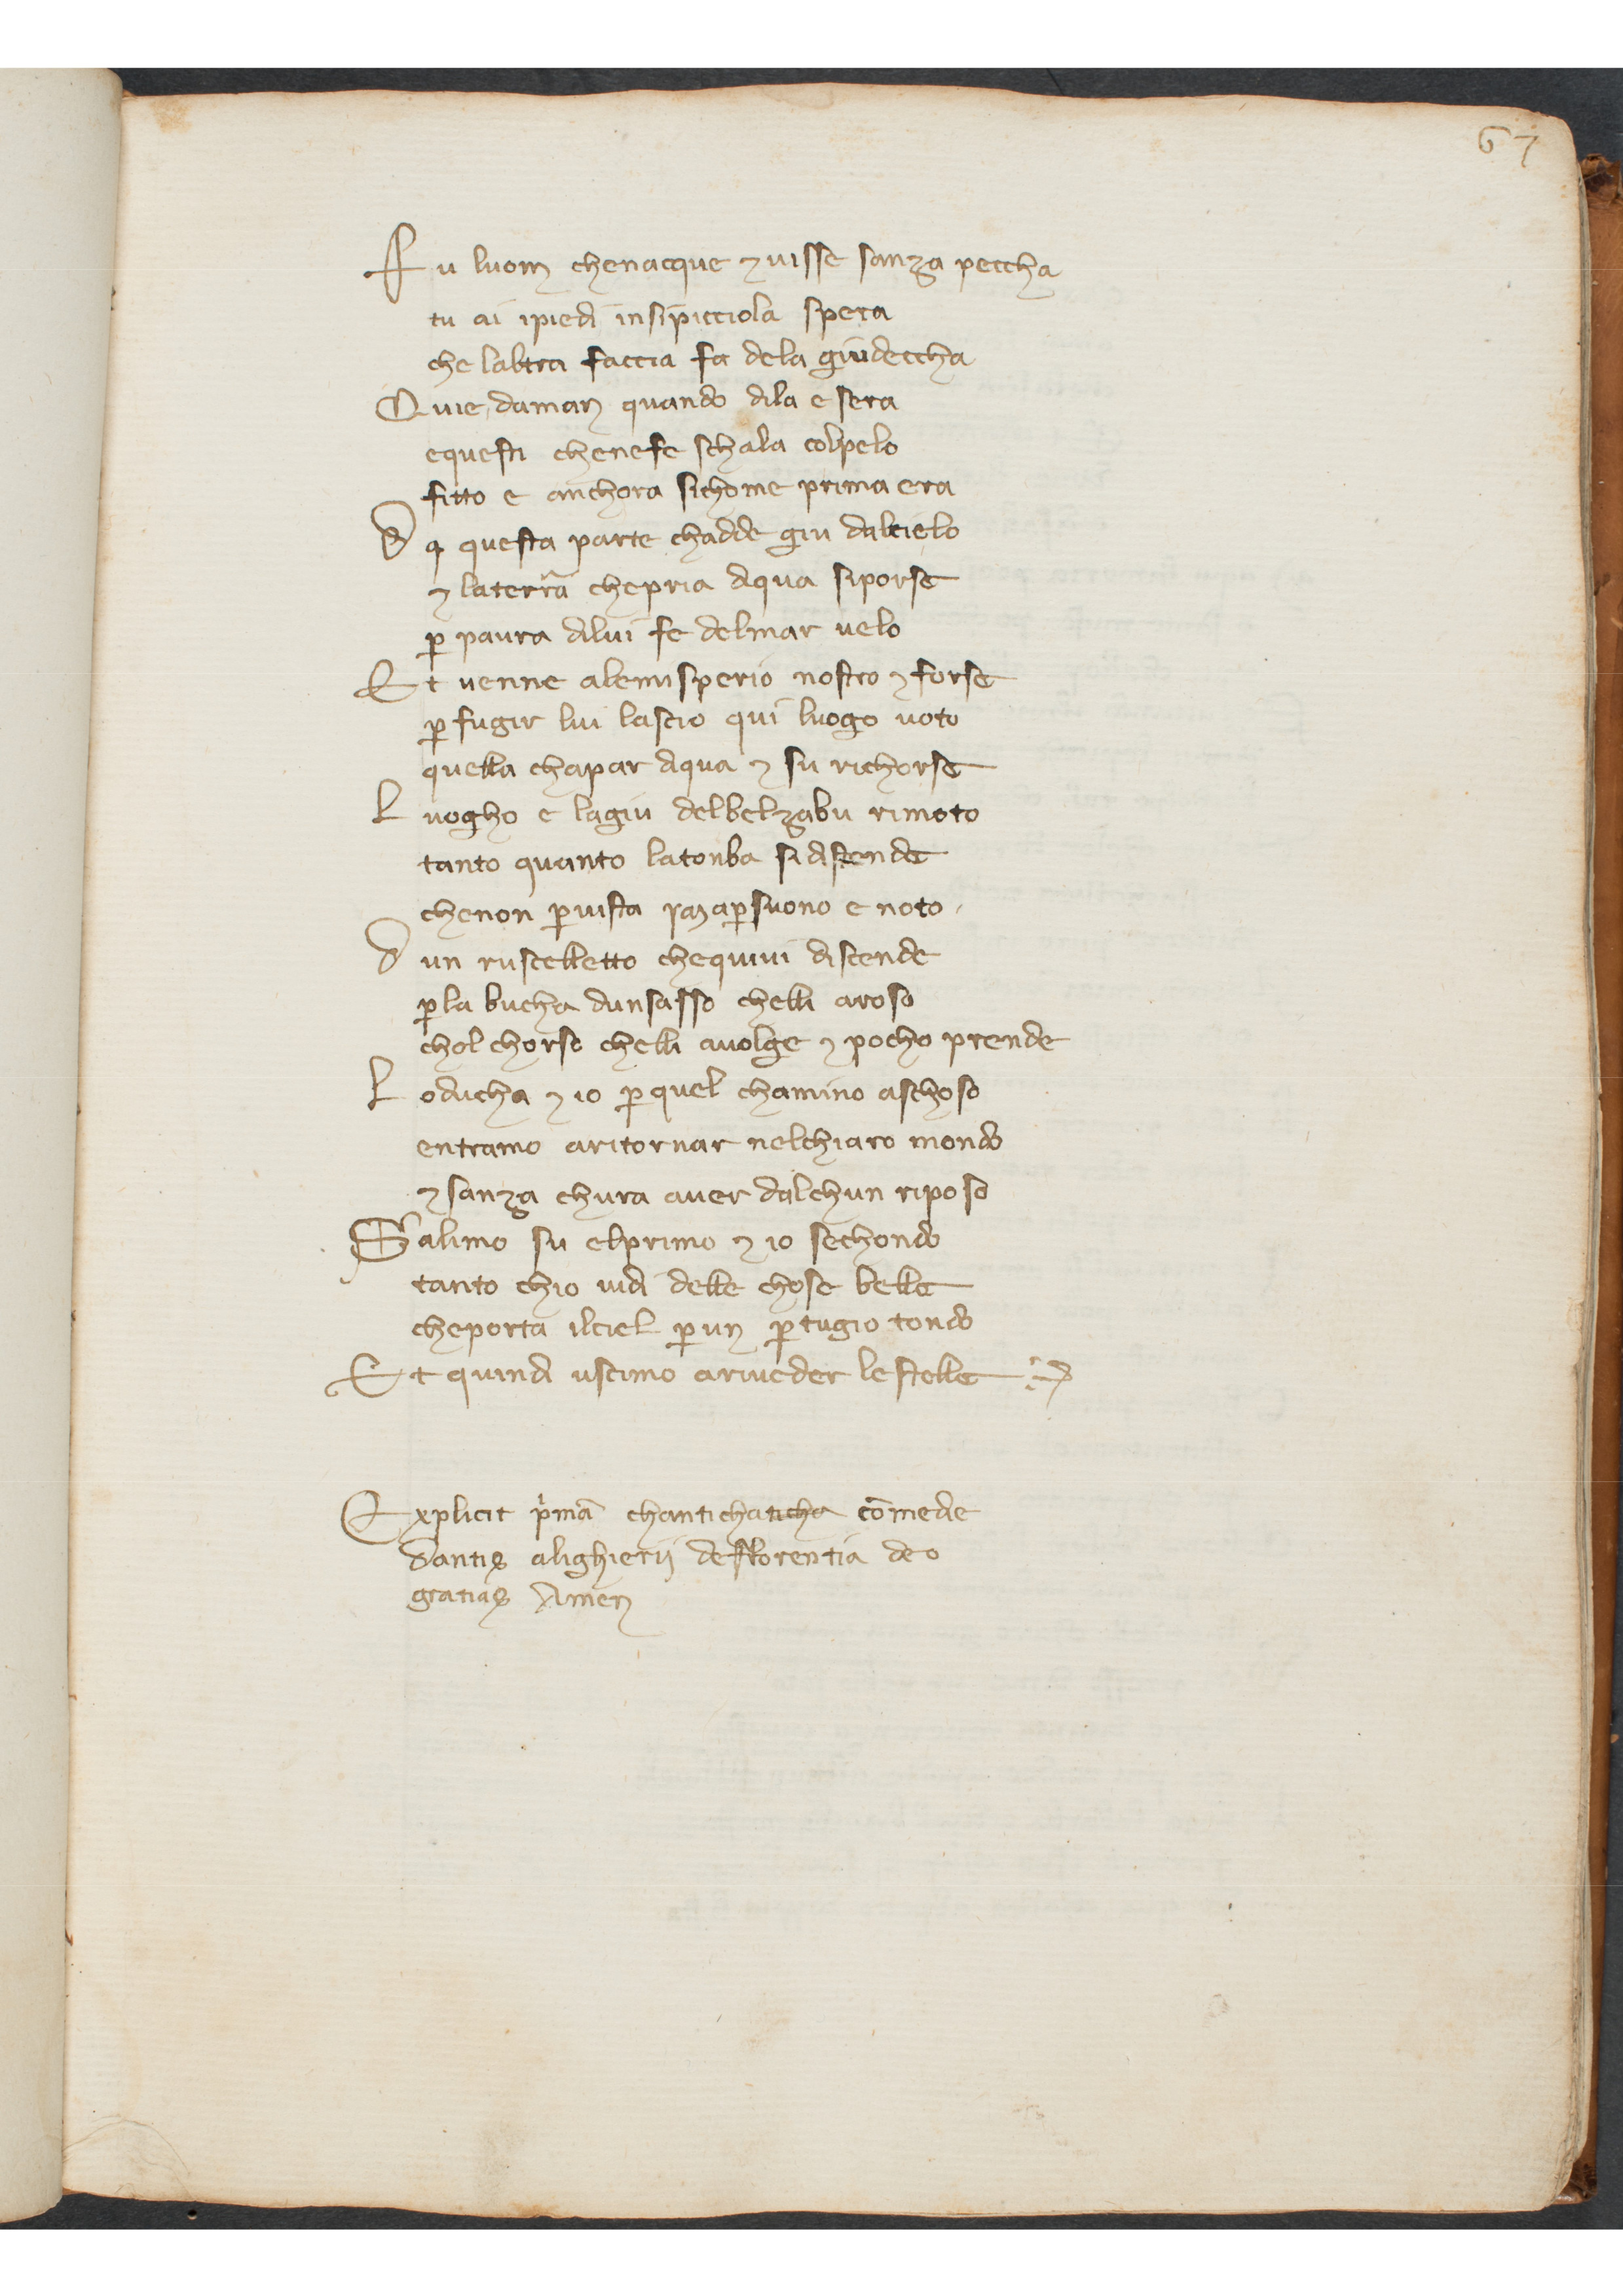 67
Fu luom chenacque ⁊ uisse sanza peccha
tu ai ipiedi insipicciola spera
che laltra faccia fa dela giudeccha
Quie daman quando dila e sera
equesti chenefe schala colpelo
fitto e anchora sichome prima era
Da questa parte chadde giu dalcielo
⁊ laterra chepria dqua siporse
ꝑ paura dilui fe delmar uelo
Et uenne alemisperio nostro ⁊ forse
ꝑ fugir lui lascio qui luogo uoto
quella chapar dqua ⁊ su richorse
Luogho e lagiu delbelzabu rimoto
tanto quanto latonba sidistende
chenon ꝑuista maꝑsuono e noto
Dun ruscelletto chequiui discende
ꝑla bucha dunsasso chelli aroso
chol chorso chelli auolge ⁊ pocho prende
Loducha ⁊ io ꝑ quel chamino aschoso
entramo aritornar nelchiaro mondo
⁊ sanza chura auer dalchun riposo
Salimo su elprimo ⁊ io sechondo
tanto chio uidi delle chose belle
cheporta ilciel ꝑ un ꝑtugio tondo
Et quindi uscimo ariueder lestelle
Explicit p̓mā chantichaticha cōmedie
Dantis alighierij deflorentia deo
gratias Amen